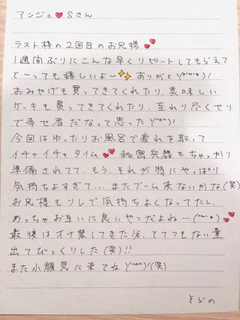 アンジュ♥Sさん
ラスト枠の2回目のお兄様💕
1週間ぶりにこんな早くリピートしてもらえて
とーっても嬉しいよー✨ありがと
おみやげも買ってきてくれたり、美味しい
ケーキも買ってきてくれたり、至れり尽くせり
で幸せ者だなって思った
今回はゆったりお風呂で疲れを取って
イチャイチャタイム💕秘密兵器もちゃっかり
準備されてて、もう、それが特にやっぱり
気持ちよすぎて…またブーム来ないかな(笑)
お兄様もソレで気持ちよくなってたし、
めっちゃお互いに良いやつだよね…
最後はオナ禁してきた分、とてつもない量
出てびっくりした(笑)!!
また小顔見に来てね(笑)